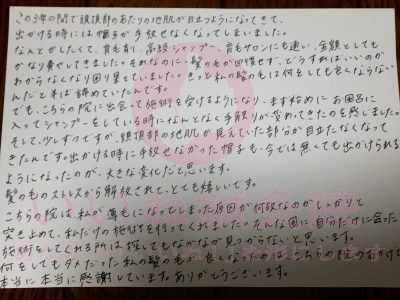 この3年の間で頭頂部のあたりの地肌が目立つようになってきて、
出かける時には帽子が手放せなくなってしまいました。
なんとかしたくて、育毛剤、高級シャンプー、育毛サロンにも通い、金額としても
かなり費やしてきました。それなのに、髪の毛が回復せず、どうすればいいのか
わからなくなり困り果てていました。きっと私の髪の毛は何をしても良くならない
んだと半ば諦めていたんです。
でも、こちらの院に出会って施術を受けるようになり、まず始めに、お風呂に
入ってシャンプーをしている時になんとなく手触りが変わってきたのを感じました。
そして、少しずつですが、頭頂部の地肌が見えていた部分が目立たなくなって
きたんです。出かける時に手放せなかった帽子も、今では無くても出かけられる
ようになったのが、大きな変化だと思います。
髪の毛のストレスから解放されて、とても嬉しいです。
こちらの院は、私が薄毛になってしまった原因が何故なのかしっかりと
突き止めて、私だけの施術を行ってくれました。そんな風に自分だけに合った
施術をしてくれる所は探してもなかなか見つからないと思います。
何をしてもダメだった私の髪の毛が良くなったのはこちらの院のおかげで
本当に本当に感謝しています。ありがとうございます。